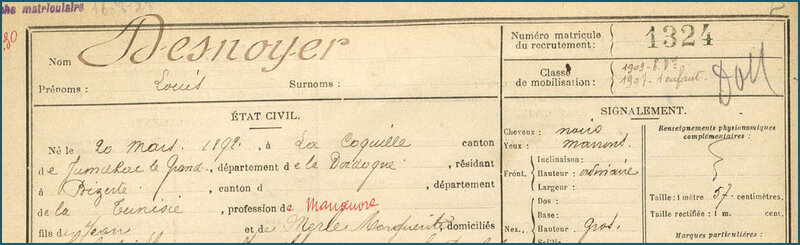 che matriculaire
Nom Desnoyer
Prénoms: Louis Surnoms:
Numéro matricule
du recrutement: 1324
Classe
de mobilisation:
1907 - 1 enfant.
ÉTAT CIVIL.
Né le 20 Mars 1892, à La Coquille canton
de Jumilhac le Grand, département de la Dordogne, résidant
à Bizerte, canton d département
de la Tunisie, profession de Manœuvre
fils de Jean et de Merle Marguerite domiciliés
SIGNALEMENT.
Cheveux: noirs
Yeux: marrons
Front. Inclinaison:
Hauteur: ordinaire
Largeur:
Nez. Dos:
Base:
Hauteur: Gros
Saillie
Renseignements physionomiques
complémentaires:
Taille: 1 mètre 57 centimètres.
Taille rectifiée: 1 m. cent.
Marques particulières: